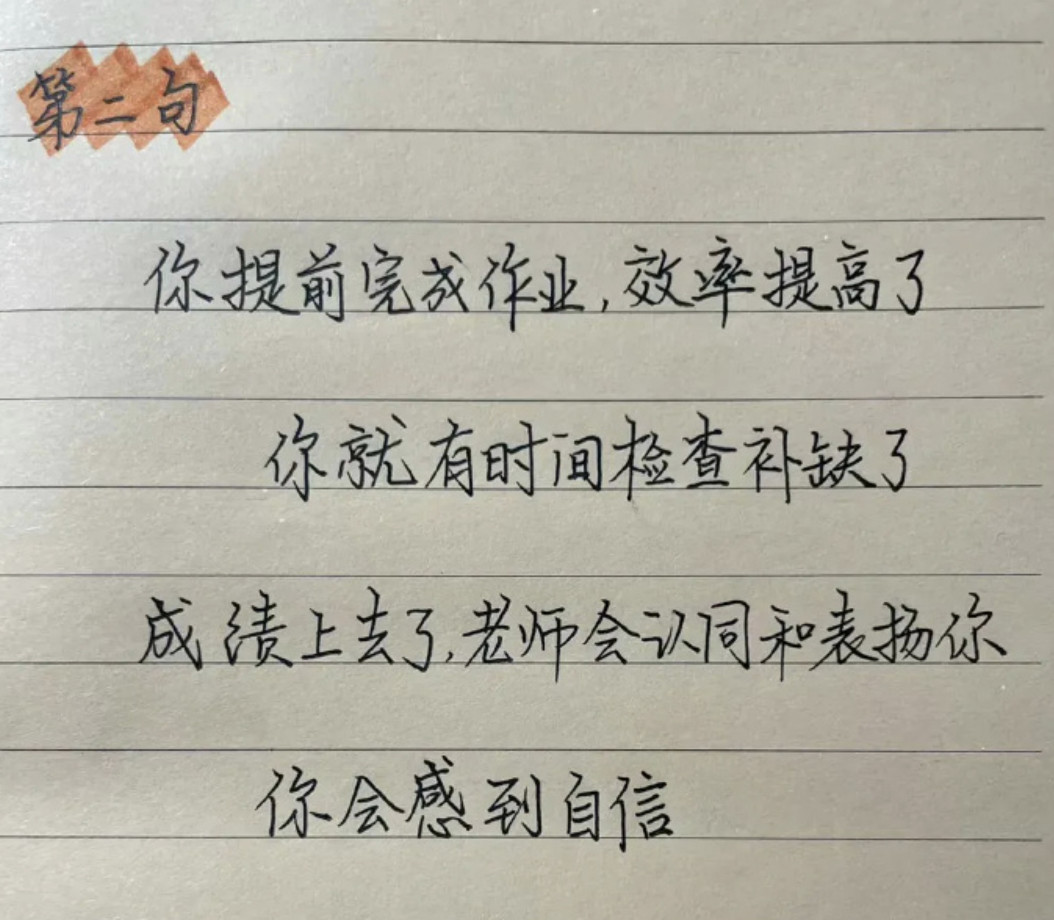 第二句
你提前完成作业,效率提高了
你就有时间检查补缺了
成绩上去了,老师会认同和表扬你
你会感到自信